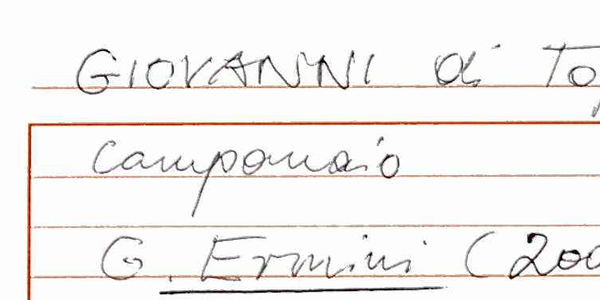 GIOVANNI di To
Campanaio
G. Ermini (200